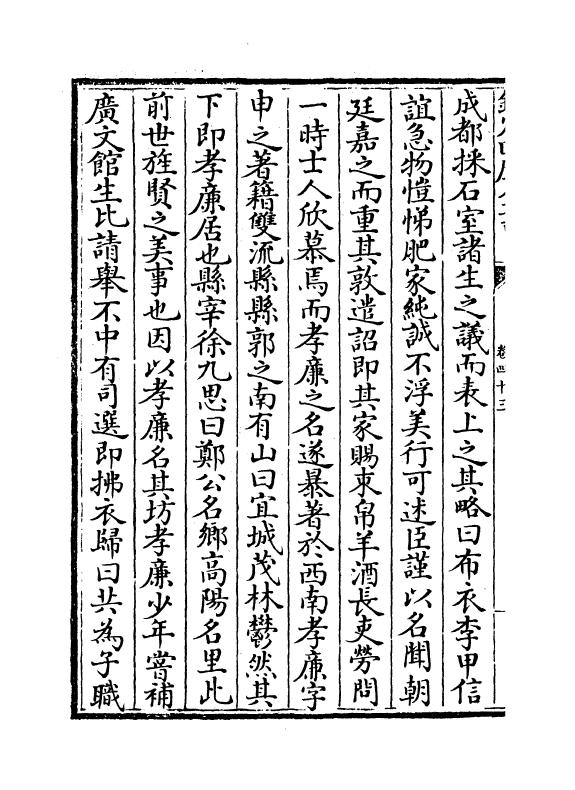 成都採石室諸生之議而表上之其略曰布衣李甲信
誼急物愷悌肥家純誠不浮美行可述臣謹以名聞朝
廷嘉之而重其敦遣詔即其家賜束帛羊酒長吏勞問
一時士人欣慕焉而孝廉之名遂暴著於西南孝廉字
申之著籍雙流縣縣郭之南有山曰宜城茂林鬱然其
下即孝廉居也縣宰徐九思曰鄭公名鄉高陽名里此
前世旌賢之美事也因以孝廉名其坊孝廉少年嘗補
廣文館生比請舉不中有司選即拂衣歸曰共為子職
卷四十三